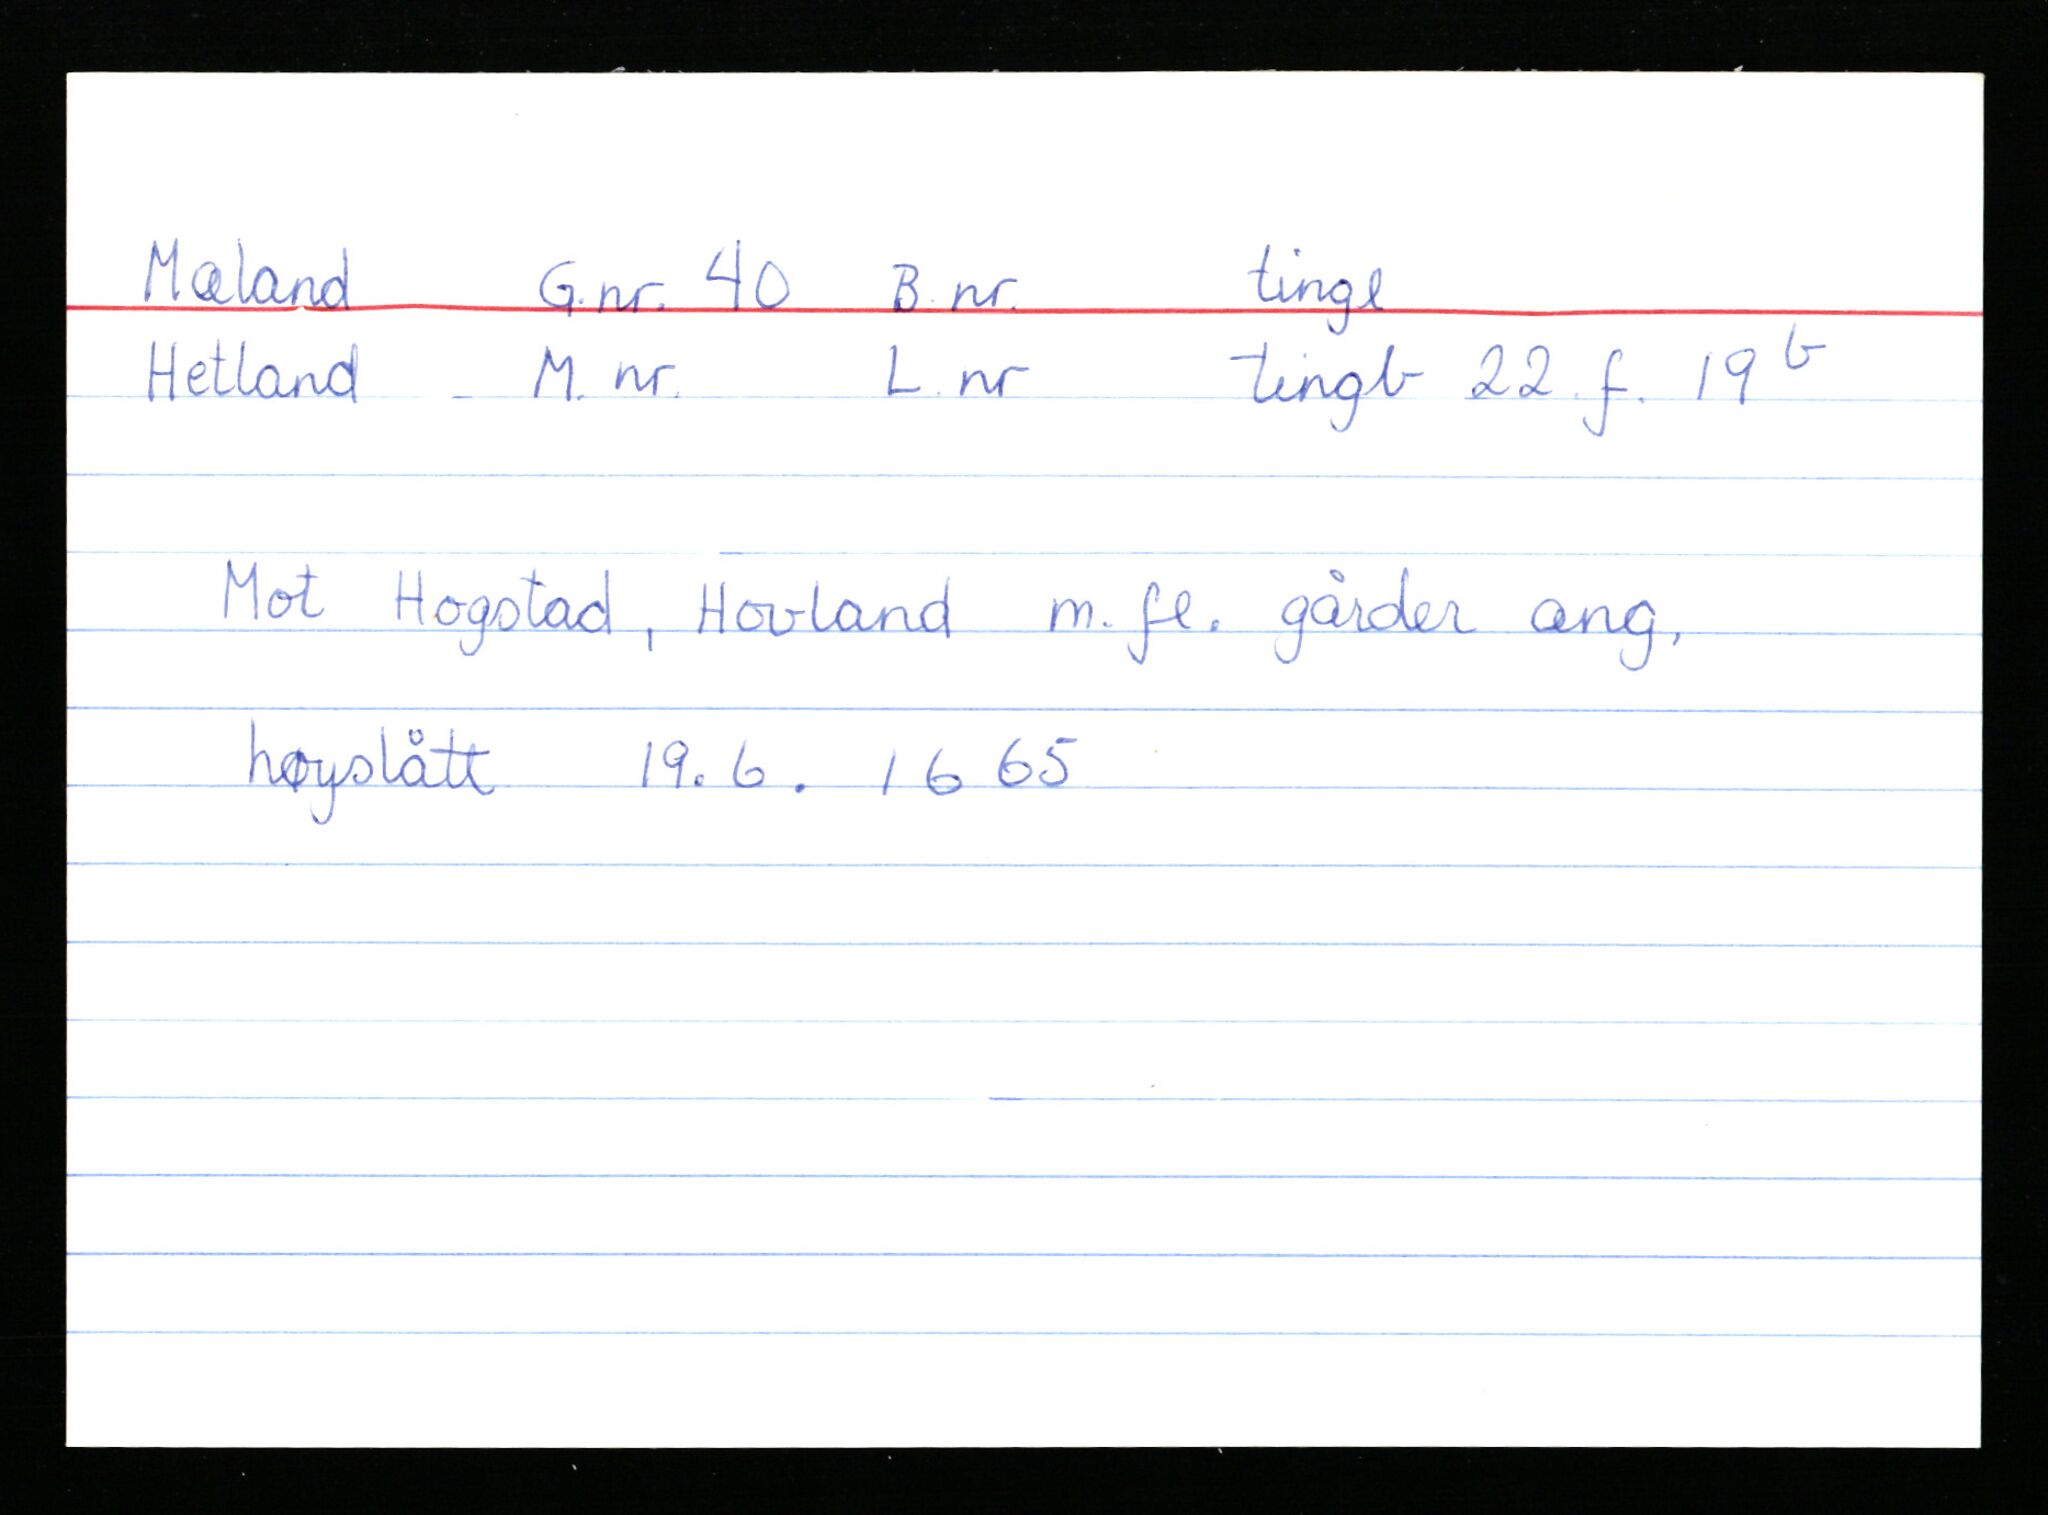 Mæland G.nr. 40 B.nr. tingl
Hetland M.nr. L.nr tingb 22 f. 19 b
Mot Hogstad, Hovland m.fl. gårder ang,
høyslått 19.6. 1665